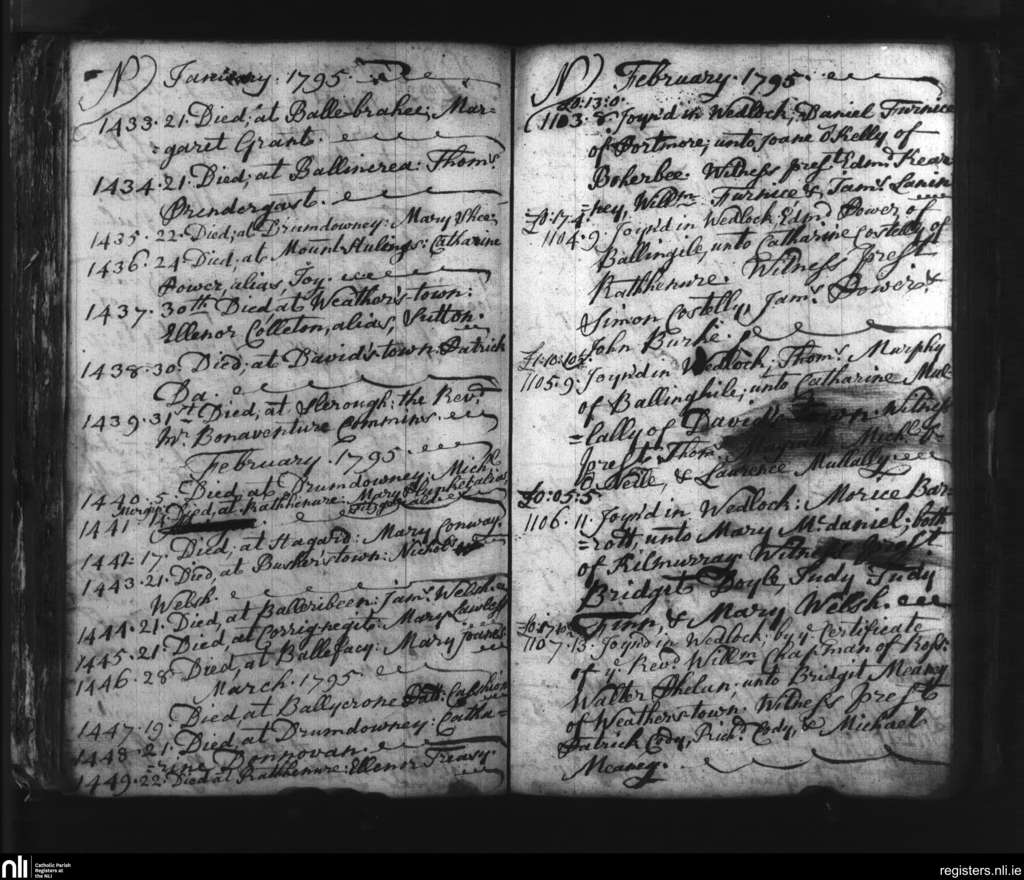 No January: 1795
1433. 21. Died, at Balle-brahee; Mar-
=garet Grant.
1434. 21. Died, at Ballinerea: Thoms
Prendergast.
1435. 22. Died, at Drumdowney: Mary Shee
1436. 24. Died, at Mount: Catharine
Power, alias, Joy.
1437. 30th Died at Weather's-town:
Ellenor Colleton, alias, Sutton.
1438. 30. Died, at David's-town: Patrick
Da.
1439. 31st Died, at Slerough: the Revd.
Mr. Bonaventure Commins.
February. 1795
1440. 5. Died, at Drumdowney: Michl.
Died, at Rathhenure: Mary alias
1441
1442. 17. Died, at Stagard: Mary Conway.
1443. 21. Died, at Busher's-town: Nichols
Welsh.
1444. 21. Died, at Balleribeen: Jams. Welsh.
1445. 21. Died, at Corrignegit: Mary Lawless
1446. 28 Died, at Ballefacy: Mary Joanes
March. 1795
1447. 19. Died, at Ballycrone Patt:
1448. 21. Died, at Drumdowney: Catha=
=rine Donnovan.
1449. 22. Died at Rathhenure: Ellenor Treavy.
No February. 1795
£0: 13: 0.
1103. 8. Joyn'd in Wedlock; Daniel Furnice
of Portmore; unto Joane O'Kelly of
Boherbee. Witness prest Edmd Kear
=ney, Willm Furnice & Jams. Lanin
£0: 17: 4.
1104. 9. Joyn'd in Wedlock Edmd Power of
Ballingile, unto Catharine Costelly of
Rathhenure. Witness prest
Simon Costelly, Jams. Power &
John Burke.
£1: 10: 10½
1105. 9. Joyn'd in Wedlock, Thoms. Murphy
of Ballinghile; unto Catharine Mul
=lally of David's town. Witness
prest Thoms. Michl.
O Neile, & Laurence Mullally.
£0: 05: 5.
1106. 11. Joyn'd in Wedlock: Morice Bar
=rott, unto Mary Mcdaniel; both
of Kilmurray. Witness prest.
Bridgit Doyle, Judy Judy
Finn, & Mary Welsh.
£0: 17:
1107. 13. Joyn'd in Wedlock; by ye Certificate
of ye Revd. Willm Chapman of Ross.
Walter Phelan; unto Bridgit Meaney
of Weathers-town. Witness prest
Patrick Cody, Richd. Cody, & Michael
Meaney.
nli
Catholic Parish
Registers at
the NLI
registers.nli.ie